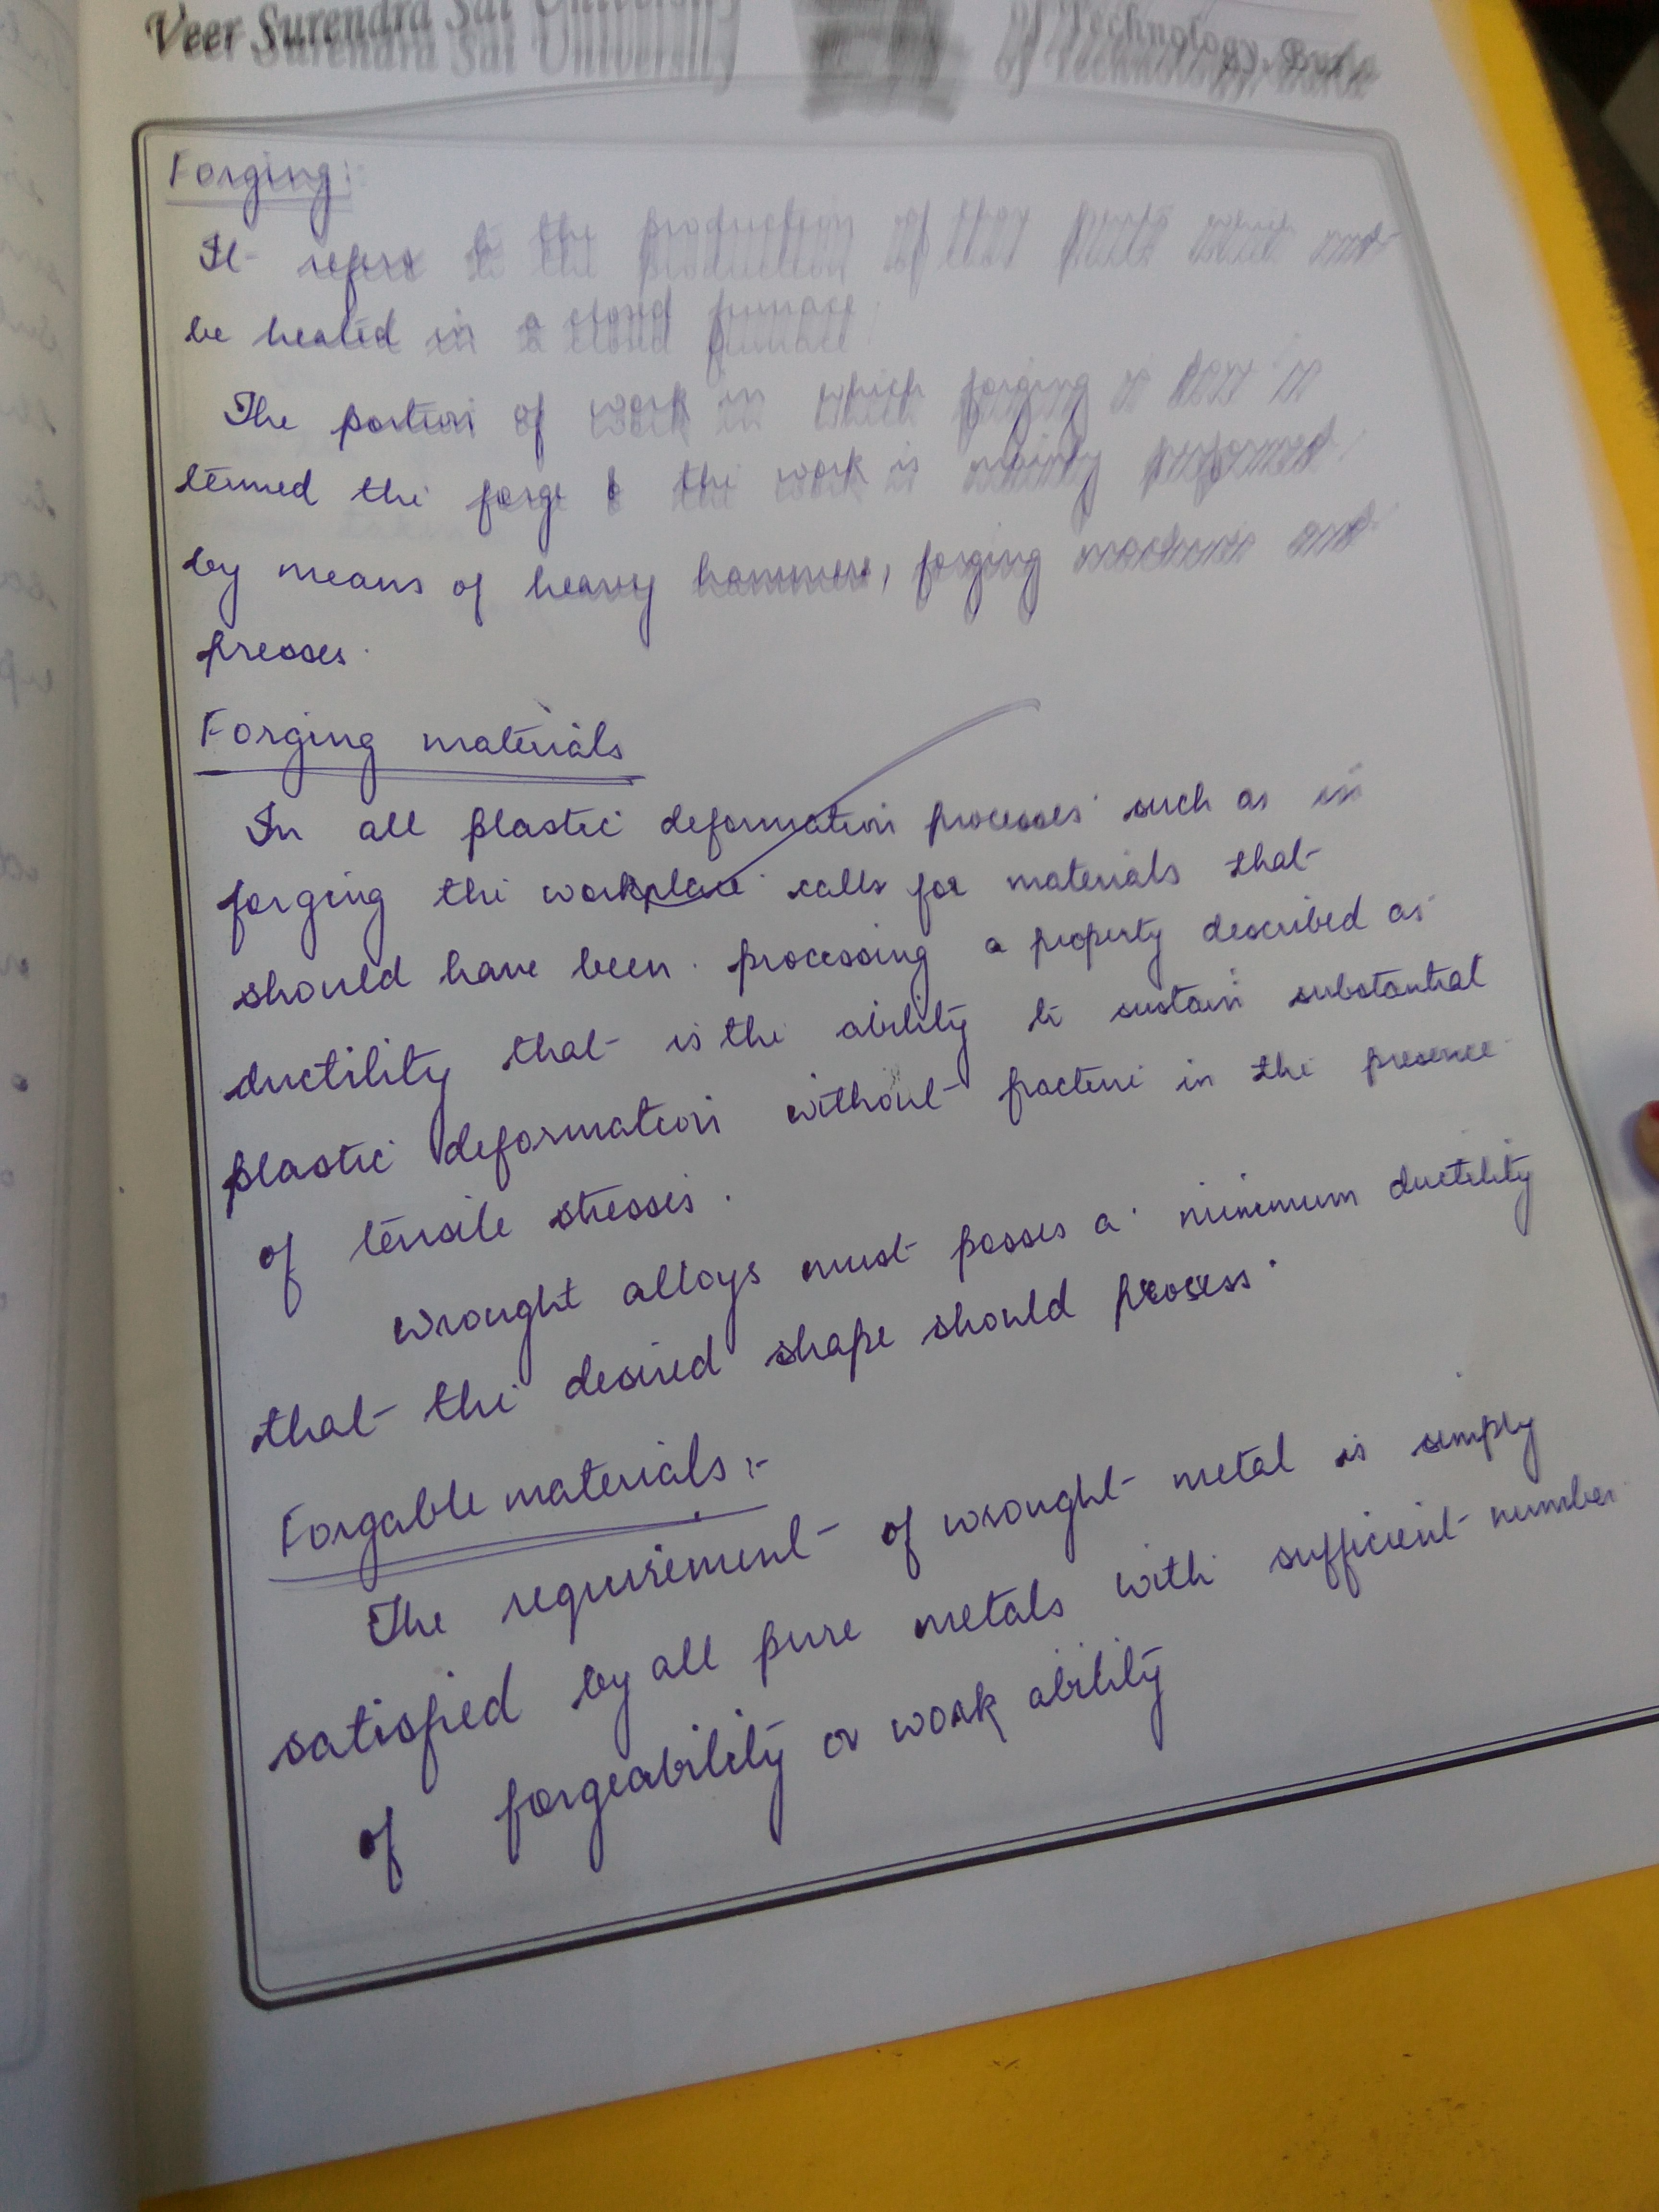 Veer Surendra Sai University of Technology, Burla
Forging:
It refers to the production of that parts which must
be heated in a closed furnace.
The portion of work in which forging is done is
termed the forge & the work is mainly performed
by means of heavy hammers, forging machines and
presses.
Forging materials
In all plastic deformation processes such as in
forging the workplace calls for materials that
should have been processing a property described as
ductility that is the ability to sustain substantial
plastic deformation without fracture in the presence
of tensile stresses.
Wrought alloys must posses a minimum ductility
that the desired shape should process.
Forgable materials:-
The requirement of wrought metal is simply
satisfied by all pure metals with sufficient number
of forgeability or work ability